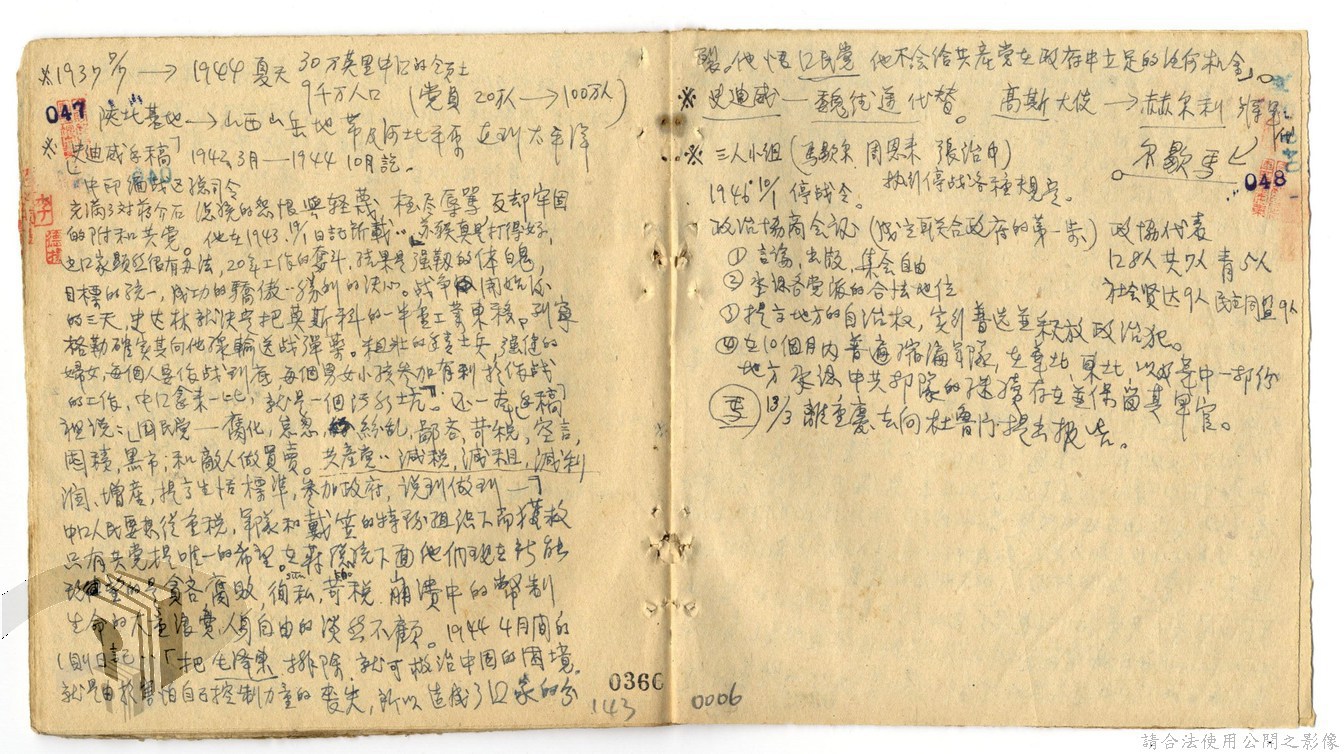 ※1937 7/7 → 1944 夏天 30万英里中口的令土
9千万人口 (党員 20万人→100万人)
047
陝北基地→山西山岳地帶及河北平原 达到太平洋
※「史迪威手稿」1942, 3月—1944 10月訖。
中印緬战区总司令
充滿了对蔣介石 深強的怨恨與轻蔑 极尽辱罵 反却牢固
的附和共党。他在1943. 日記所載:「苏联真是打得好,
这口家顯然很有办法, 20年工作的奮斗, 結果是強靱的体魄,
目標的統一, 成功的驕傲, 勝利的決心。战争开始后
的三天, 史达林就決定把莫斯科的一半重工業東移。列寧
格勒確实其向他操輸送战彈藥。粗壯的騎士兵, 強健的
婦女, 每個人是作战到底, 每個男女小孩参加有利於作战
的工作, 中口拿来一比, 就是一個污水坑。」还一克这稿
裡说:「国民党—腐化, 怠忽, 紛乱, 鄙吝, 苛税, 空言,
囤積, 黑市, 和敵人做買賣。共產党:減税, 減租, 減利
润, 增産, 提高生活標準, 参加政府, 说到做到—」
中口人民要想從重税, 軍隊和戴笠的特務組织下而獲救
只有共党是唯一的希望。在蔣 統下面他們現在祈能
改 望的是貪吝腐敗, 徇私, 苛税 崩潰中的幣制
生命的大量浪費, 人身自由的淡然不顧。1944 4月間的
一則日記:「把毛泽東 排除 就可救治中国的困境,
就是由於害怕自己控制力量的喪失, 所以造成了口家的分
0360
143
裂。他怕口民党 他不会给共產党在政府中立足的任何机会」。
※史迪威—魏德邁代替。 高斯大使→赫尔利 將軍
馬歇尔
048
※三人小組(馬歇尔 周恩来 張治中)
执行停战各種規定。
1946. 10/1 停战令。
政治協商会议 (成立联合政府的第一步) 政協代表
①言論, 出版, 集会自由 口8人 共7人 青5人
②承認各党派的合法地位 社会賢达9人 民主同盟9人
③提高地方的自治权, 实行普选並釈放政治犯。
④在10個月内普遍缩編軍隊, 在華北, 東北, 以及華中一部份
地方 承認中共部隊的继續存在並保留其軍官。
馬 13/3 離重慶去向杜魯门提出报告。
0006
請合法使用公開之影像